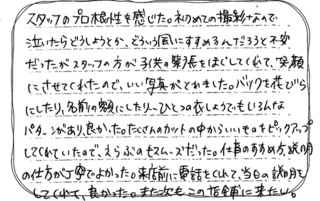 スタッフのプロ根性を感じた。初めての撮影なので
泣いたらどうしようとか、どういう風にすすめるんだろうと不安
だったがスタッフの方が子供の緊張をほぐしてくれて、笑顔
にさせてくれたので、いい写真がとれました。バックを花びら
にしたり、名前の額にしたり…ひとつの衣しょうでもいろんな
パターンがあり良かった。たさんカットの中からいいものをピックアップ
してくれていたので、えらぶのもスムーズだった。仕事のすすめ方、説明
の仕方が丁寧でよかった。来店前に電話をくれて、当日の説明を
してくれて、良かった。また次もこの店舗に来たい。